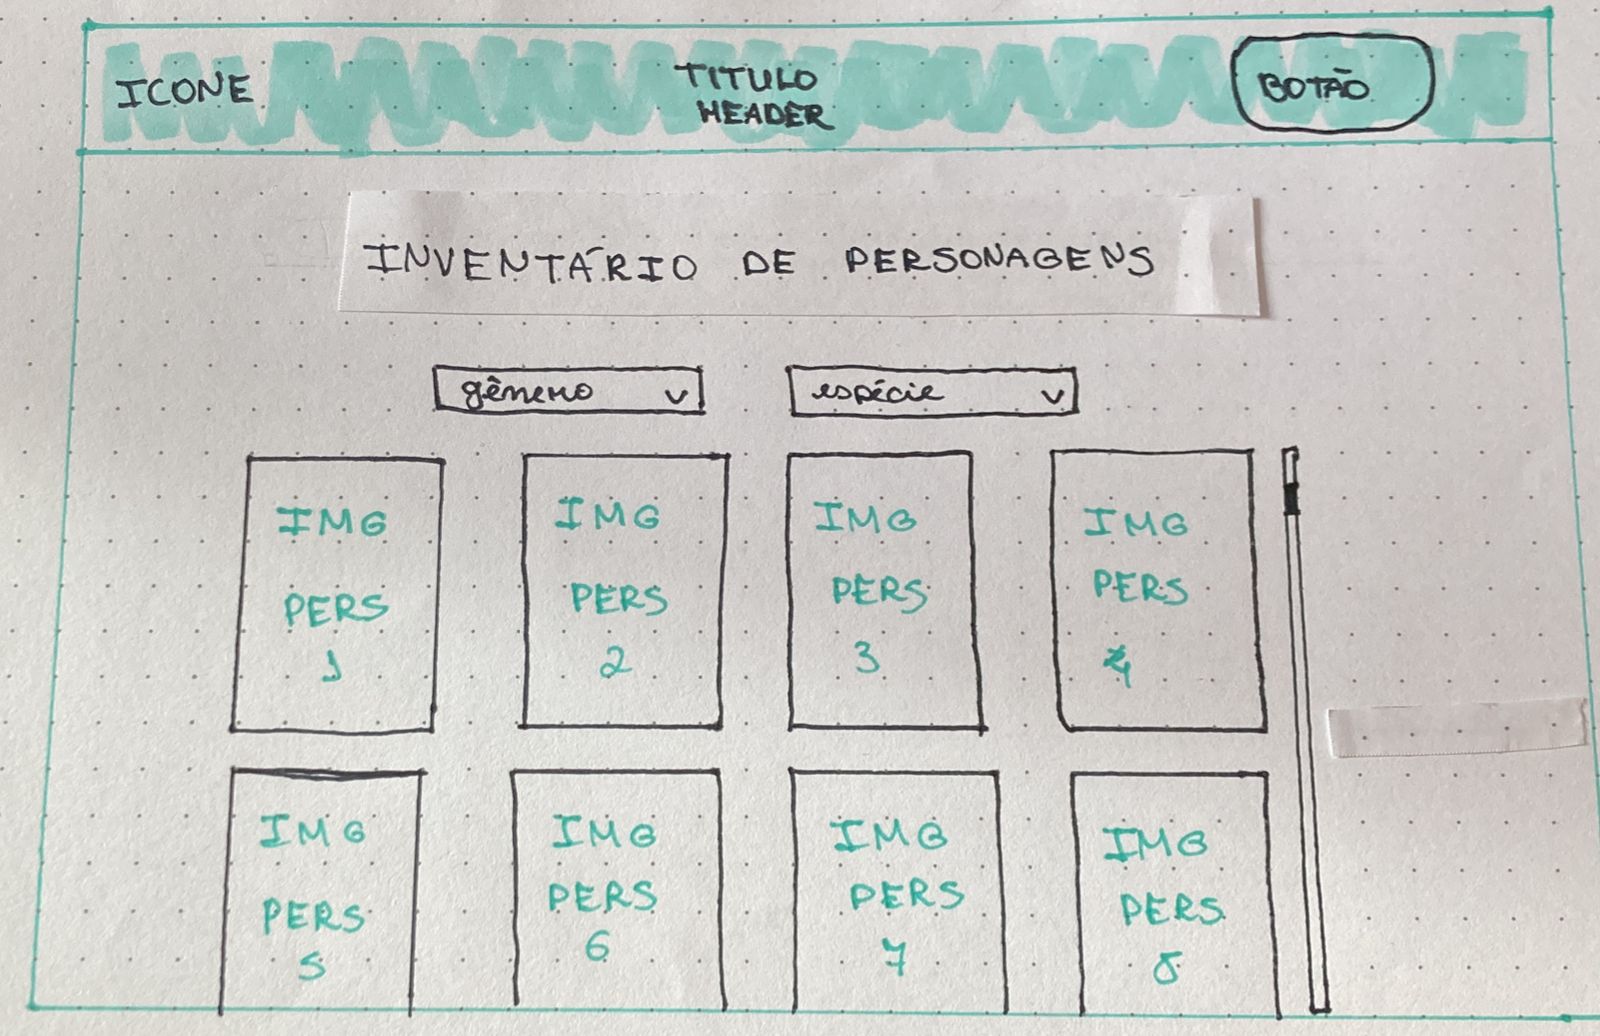 ICONE
TITULO
HEADER
BOTÃO
INVENTÁRIO DE PERSONAGENS
gênero v
espécie v
IMG
PERS
1
IMG
PERS
2
IMG
PERS
3
IMG
PERS
4
IMG
PERS
5
IMG
PERS
6
IMG
PERS
7
IMG
PERS
8